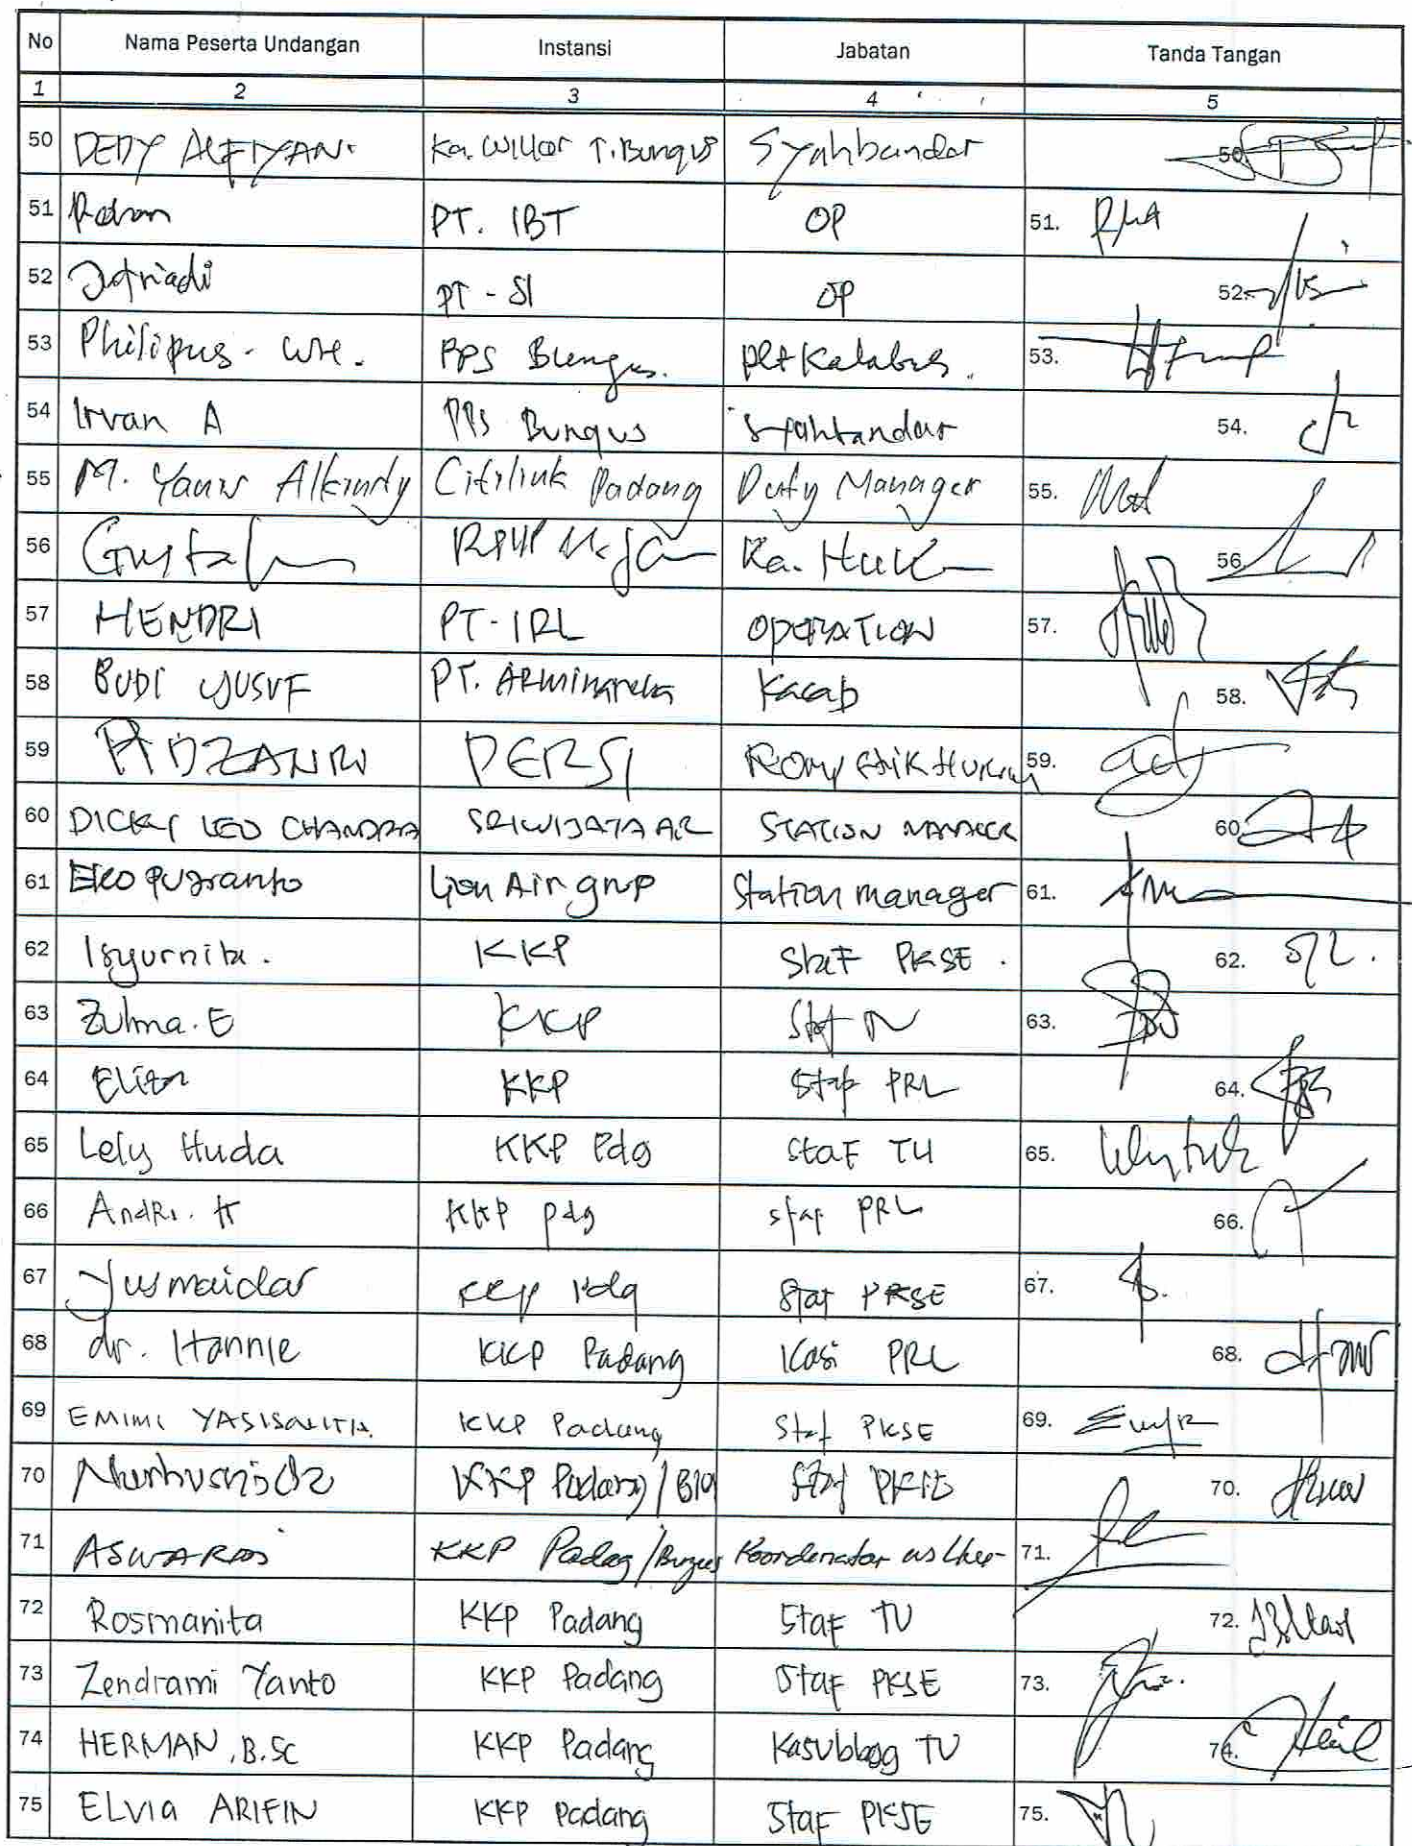 No Nama Peserta Undangan Instansi Jabatan Tanda Tangan
1 2 3 4 5
50 DEDY ALFIYAN. Ka. Wilker T. Bungus Syahbandar 50.
51 PT. IBT OP 51.
52 PT - SI OP 52.
53 Philipus - PPS Bungus. plt Kalabuh. 53.
54 Irvan A PPS Bungus Syahbandar 54.
55 M. Alkindy Citilink Padang Duty Manager 55.
56 Ka. 56.
57 HENDRI PT - IRL OPERATION 57.
58 BUDI YUSUF PT. Kacab 58.
59 PERSI 59.
60 DICKY LEO CHANDRA SRIWIJAYA AIR STATION MANAGER 60.
61 Eko Lion Air grup Station manager 61.
62 Isyurnita. KKP Staf PKSE. 62.
63 Zulma. E KKP Staf 63.
64 KKP Staf PRL 64.
65 Lely Huda KKP Pdg Staf TU 65.
66 Andri. K KKP Pdg staf PRL 66.
67 Yusmaidar KKP Pdg Staf PKSE 67.
68 dr. Hannie KKP Padang Kasi PRL 68.
69 EMIMI KKP Padang Staf PKSE 69.
70 KKP Padang / Staf 70.
71 KKP Padag / Bungus Koordenator 71.
72 Rosmanita KKP Padang Staf TU 72.
73 Zendrami Yanto KKP Padang Staf PKSE 73.
74 HERMAN, B.Sc KKP Padang Kasubbag TU 74.
75 ELVIA ARIFIN KKP Padang Staf PKSE 75.